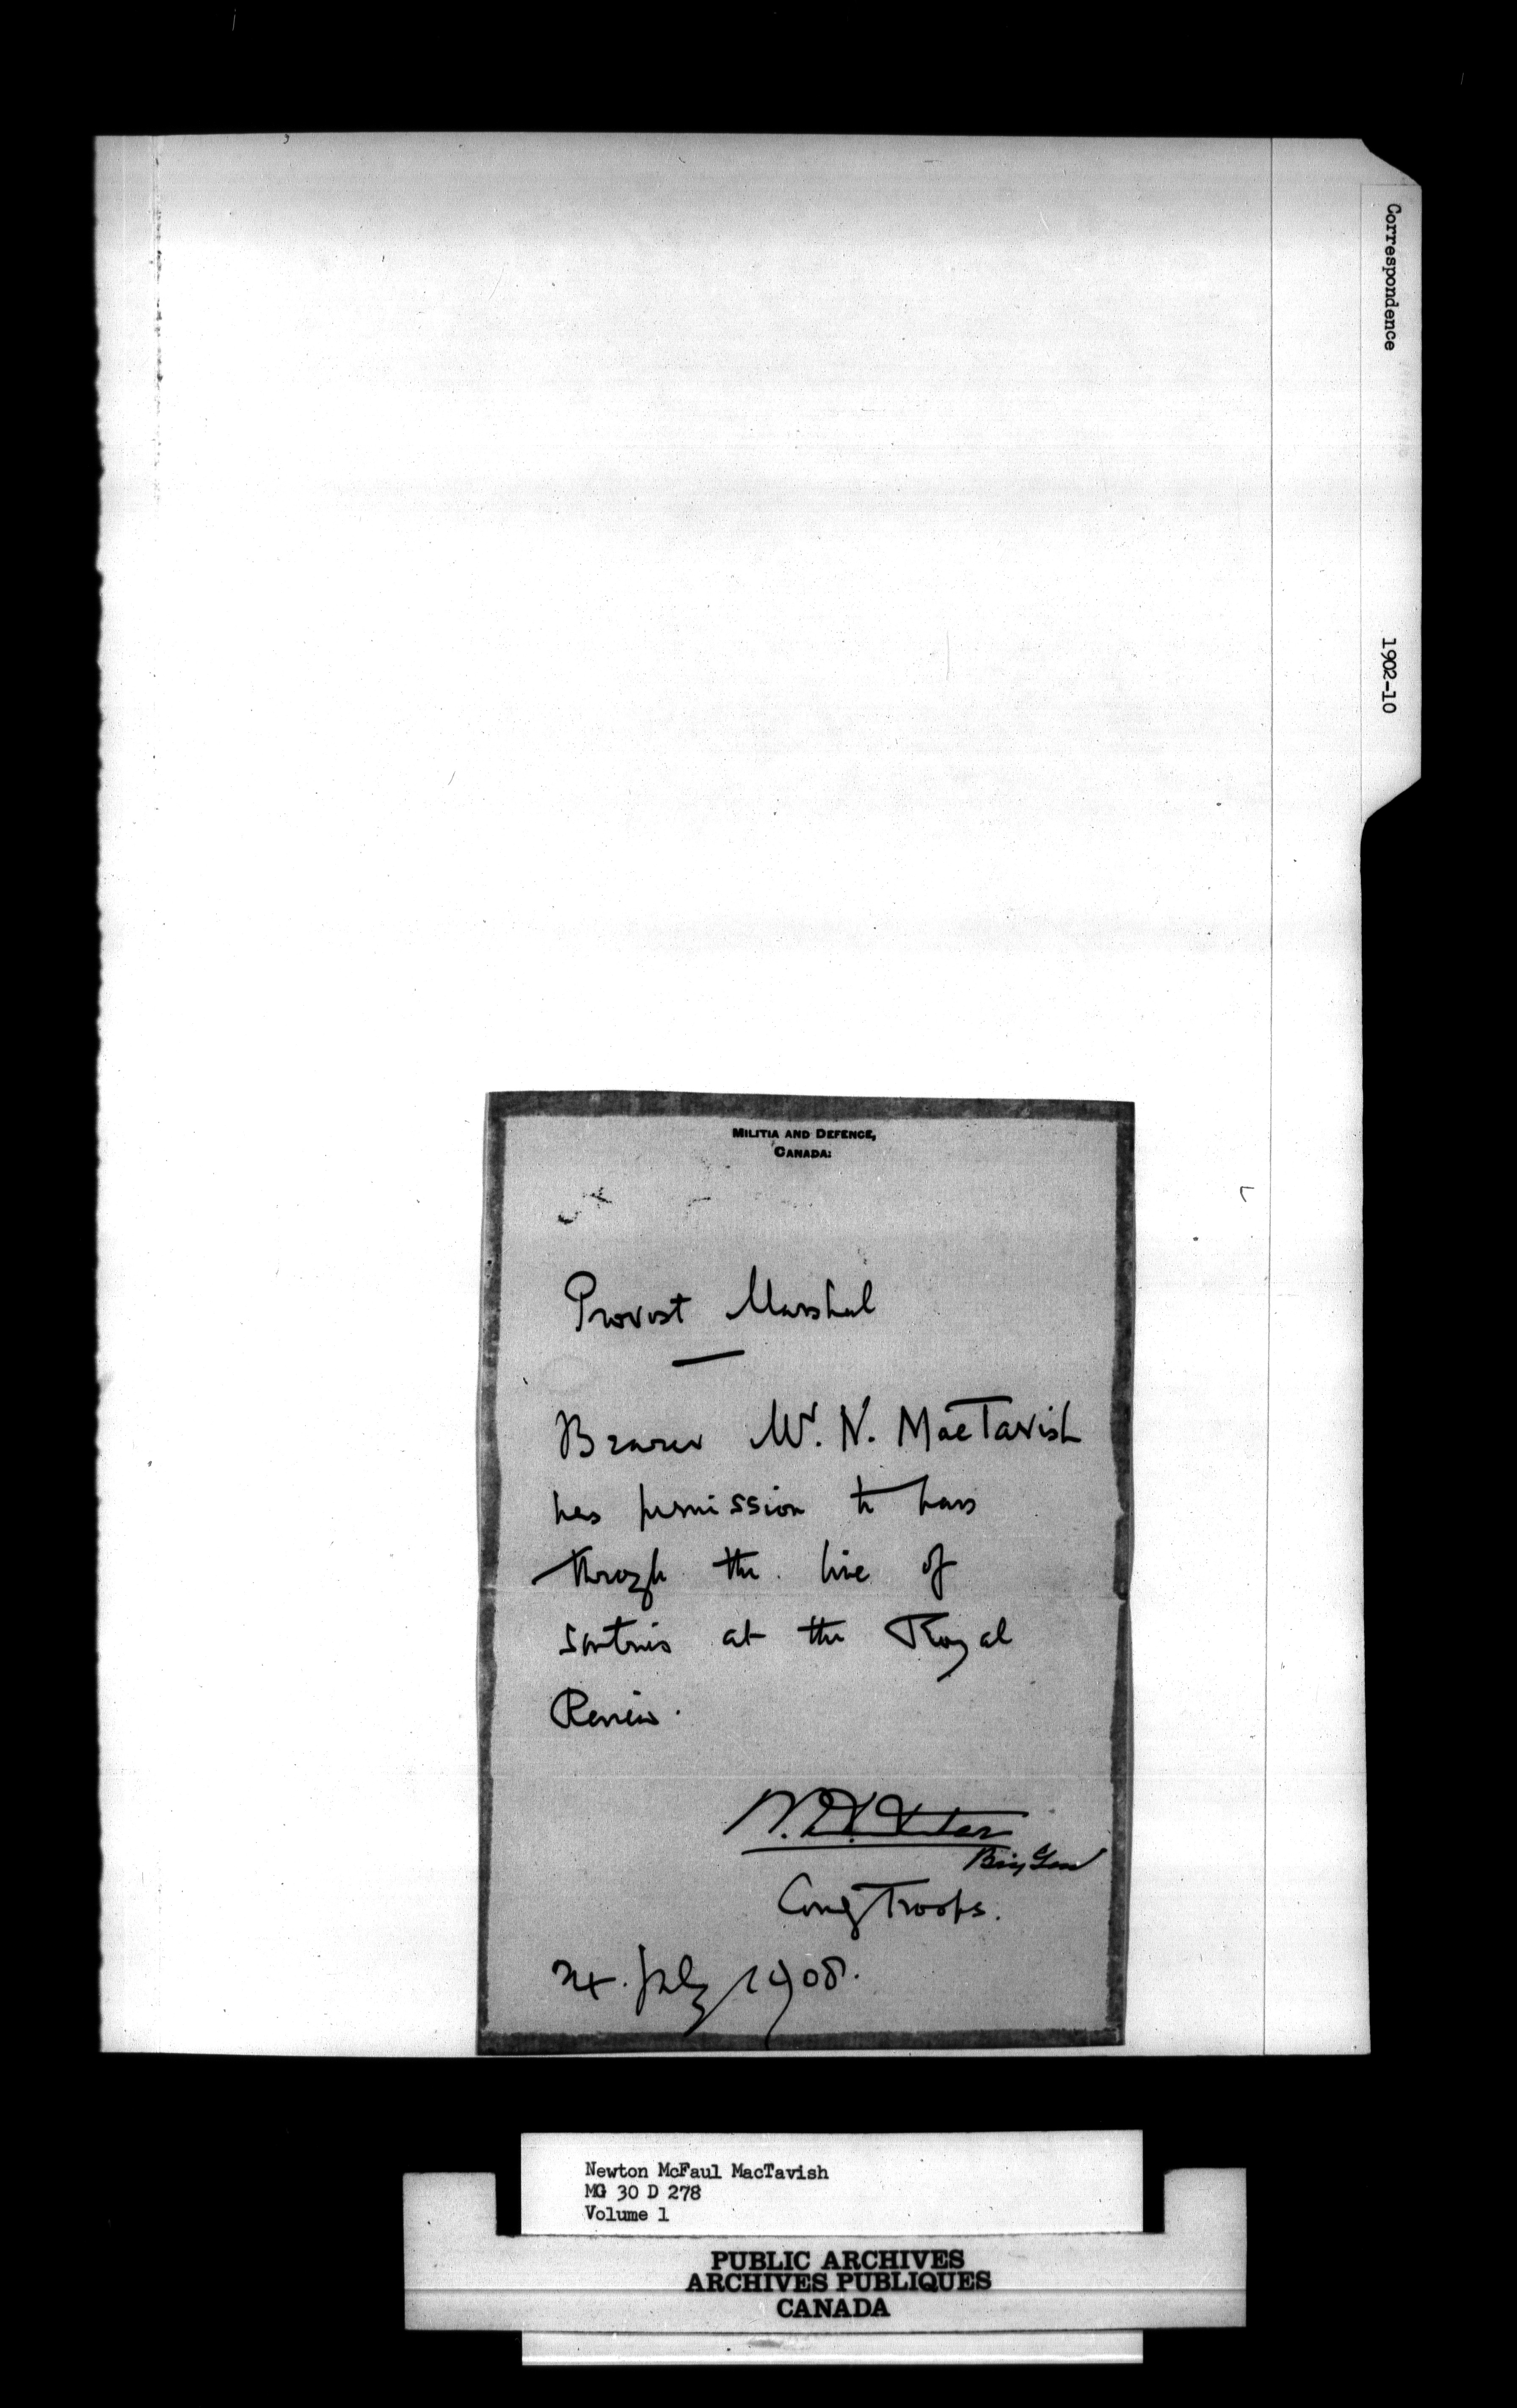 Correspondence
1902-10
MILITIA AND DEFENCE,
CANADA.
Provost Marshal
Bearer Mr. N. MacTavish
has permission to pass
through the line of
sentries at the Royal
Review.
W. D. Otter
Brig Gen
Comg Troops.
24. July 1908.
Newton McFaul MacTavish
MG 30 D 278
Volume 1
PUBLIC ARCHIVES
ARCHIVES PUBLIQUES
CANADA